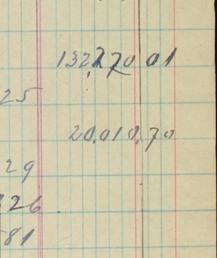 132,270 01
25
20,010,70
29
326
581